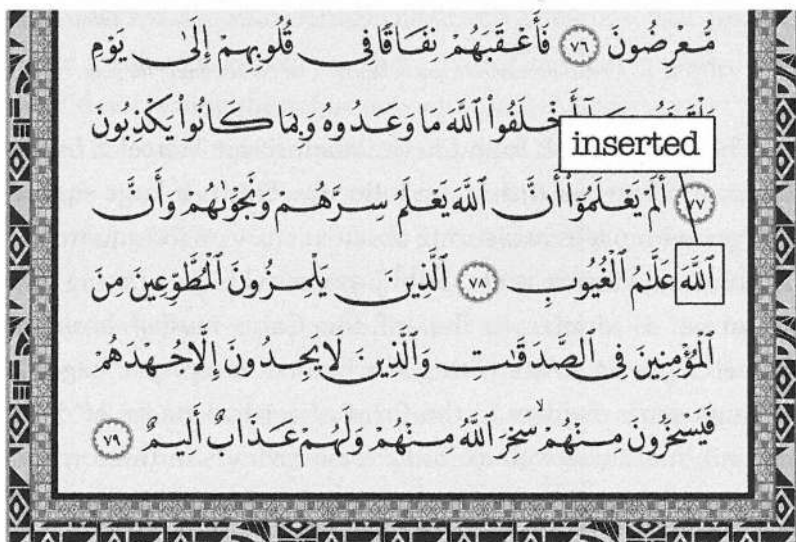 مُّعْرِضُونَ ٧٦ فَأَعْقَبَهُمْ نِفَاقًا فِي قُلُوبِهِمْ إِلَىٰ يَوْمِ
أَخْلَفُوا۟ ٱللَّهَ مَا وَعَدُوهُ وَبِمَا كَانُوا۟ يَكْذِبُونَ
inserted
٧٧ أَلَمْ يَعْلَمُوٓا۟ أَنَّ ٱللَّهَ يَعْلَمُ سِرَّهُمْ وَنَجْوَىٰهُمْ وَأَنَّ
ٱللَّهَ عَلَّٰمُ ٱلْغُيُوبِ ٧٨ ٱلَّذِينَ يَلْمِزُونَ ٱلْمُطَّوِّعِينَ مِنَ
ٱلْمُؤْمِنِينَ فِى ٱلصَّدَقَٰتِ وَٱلَّذِينَ لَا يَجِدُونَ إِلَّا جُهْدَهُمْ
فَيَسْخَرُونَ مِنْهُمْ سَخِرَ ٱللَّهُ مِنْهُمْ وَلَهُمْ عَذَابٌ أَلِيمٌ ٧٩